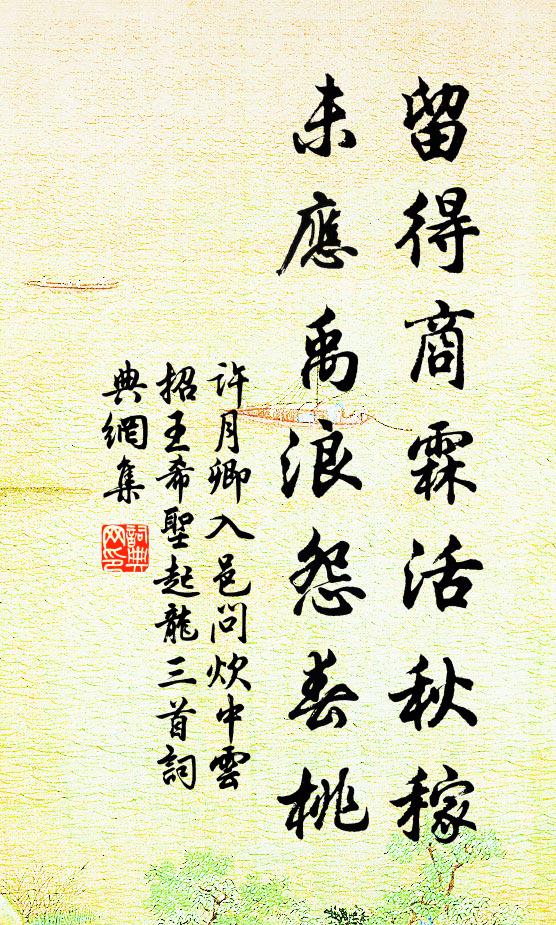 留得商霖活秋稼
未應禹浪怨春桃
許月卿入邑問炊中雲
招王希聖起龍三首詞
典網集
詞典網印